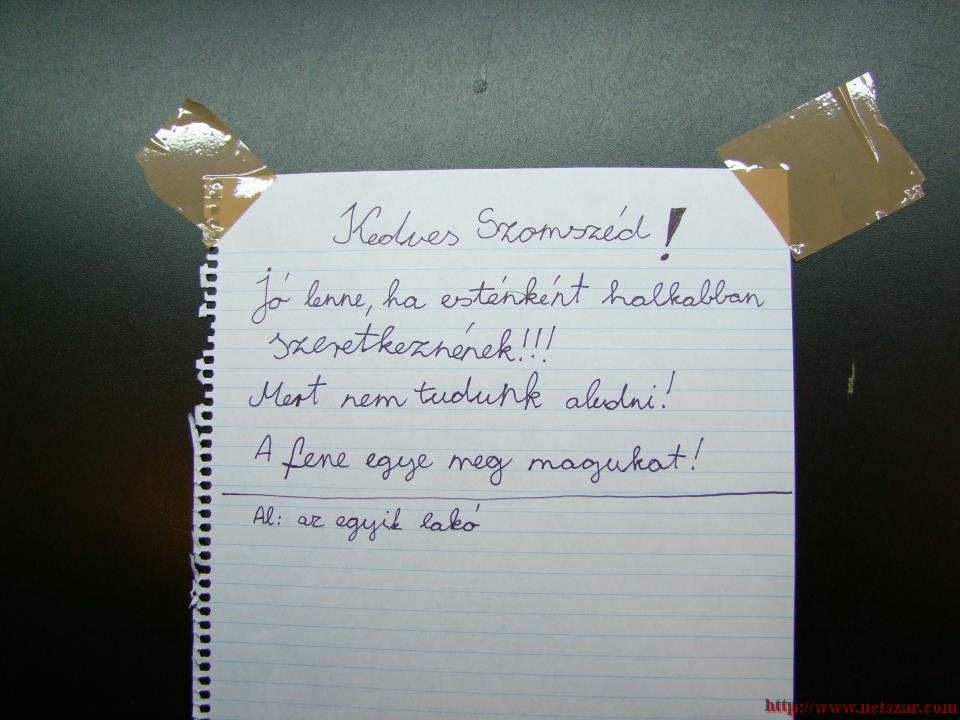 Kedves Szomszéd!
Jó lenne, ha esténként halkabban
szeretkeznének!!!
Mert nem tudunk aludni!
A fene egye meg magukat!
Al: az egyik lakó
http://www.netszar.com